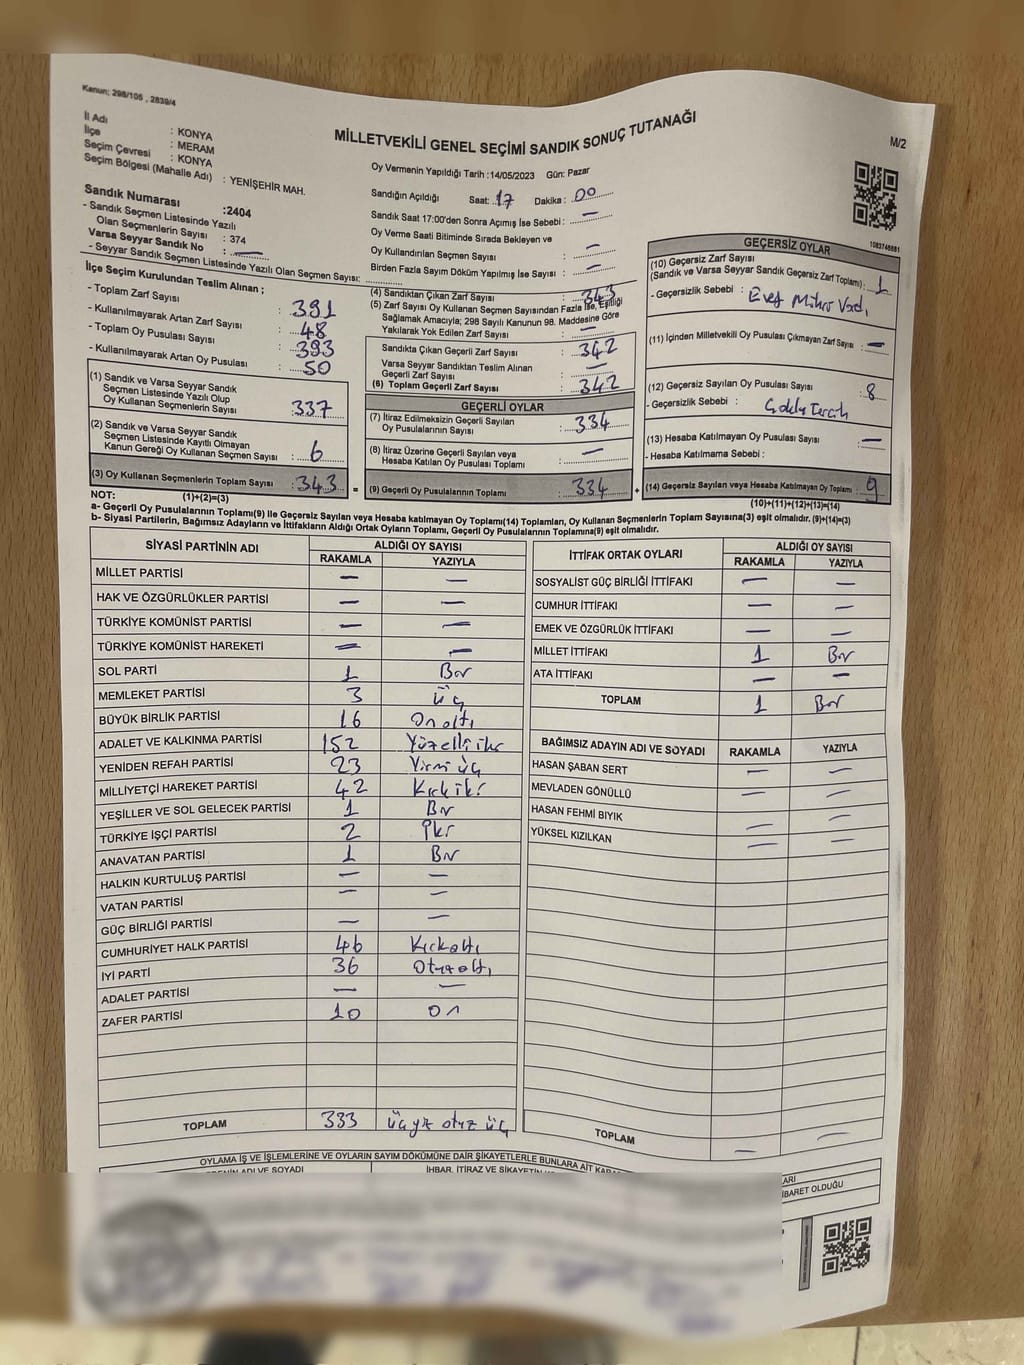 Kanun; 298/105 , 2839/4
MİLLETVEKİLİ GENEL SEÇİMİ SANDIK SONUÇ TUTANAĞI
M/2
İl Adı : KONYA
İlçe : MERAM
Seçim Çevresi : KONYA
Seçim Bölgesi (Mahalle Adı) : YENİŞEHİR MAH.
Sandık Numarası :2404
- Sandık Seçmen Listesinde Yazılı
Olan Seçmenlerin Sayısı : 374
Varsa Seyyar Sandık No : —
- Seyyar Sandık Seçmen Listesinde Yazılı Olan Seçmen Sayısı:
İlçe Seçim Kurulundan Teslim Alınan ;
- Toplam Zarf Sayısı : 391
- Kullanılmayarak Artan Zarf Sayısı : 48
- Toplam Oy Pusulası Sayısı : 393
- Kullanılmayarak Artan Oy Pusulası : 50
(1) Sandık ve Varsa Seyyar Sandık
Seçmen Listesinde Yazılı Olup
Oy Kullanan Seçmenlerin Sayısı :337
(2) Sandık ve Varsa Seyyar Sandık
Seçmen Listesinde Kayıtlı Olmayan
Kanun Gereği Oy Kullanan Seçmen Sayısı : 6
(3) Oy Kullanan Seçmenlerin Toplam Sayısı : 343
Oy Vermenin Yapıldığı Tarih :14/05/2023 Gün: Pazar
Sandığın Açıldığı Saat: 17 Dakika : 00
Sandık Saat 17:00'den Sonra Açımış İse Sebebi : —
Oy Verme Saati Bitiminde Sırada Bekleyen ve
Oy Kullandırılan Seçmen Sayısı : —
Birden Fazla Sayım Döküm Yapılmış İse Sayısı : —
(4) Sandıktan Çıkan Zarf Sayısı : 343
(5) Zarf Sayısı Oy Kullanan Seçmen Sayısından Fazla İse, Eşitliği
Sağlamak Amacıyla; 298 Sayılı Kanunun 98. Maddesine Göre
Yakılarak Yok Edilen Zarf Sayısı : —
Sandıkta Çıkan Geçerli Zarf Sayısı : 342
Varsa Seyyar Sandıktan Teslim Alınan
Geçerli Zarf Sayısı : —
(6) Toplam Geçerli Zarf Sayısı : 342
GEÇERLİ OYLAR
(7) İtiraz Edilmeksizin Geçerli Sayılan
Oy Pusulalarının Sayısı : 334
(8) İtiraz Üzerine Geçerli Sayılan veya
Hesaba Katılan Oy Pusulası Toplamı : —
= (9) Geçerli Oy Pusulalarının Toplamı : 334
1083748881
GEÇERSİZ OYLAR
(10) Geçersiz Zarf Sayısı
(Sandık ve Varsa Seyyar Sandık Geçersiz Zarf Toplamı) : 1
- Geçersizlik Sebebi : Evet Mührü Vardı
(11) İçinden Milletvekili Oy Pusulası Çıkmayan Zarf Sayısı : —
(12) Geçersiz Sayılan Oy Pusulası Sayısı : 8
- Geçersizlik Sebebi : Çoklu Tercih
(13) Hesaba Katılmayan Oy Pusulası Sayısı : —
- Hesaba Katılmama Sebebi :
+ (14) Geçersiz Sayılan veya Hesaba Katılmayan Oy Toplamı : 9
NOT: (1)+(2)=(3)
(10)+(11)+(12)+(13)=(14)
a- Geçerli Oy Pusulalarının Toplamı(9) ile Geçersiz Sayılan veya Hesaba katılmayan Oy Toplamı(14) Toplamları, Oy Kullanan Seçmenlerin Toplam Sayısına(3) eşit olmalıdır. (9)+(14)=(3)
b- Siyasi Partilerin, Bağımsız Adayların ve İttifakların Aldığı Ortak Oyların Toplamı, Geçerli Oy Pusulalarının Toplamına(9) eşit olmalıdır.
SİYASİ PARTİNİN ADI ALDIĞI OY SAYISI
RAKAMLA YAZIYLA
MİLLET PARTİSİ — —
HAK VE ÖZGÜRLÜKLER PARTİSİ — —
TÜRKİYE KOMÜNİST PARTİSİ — —
TÜRKİYE KOMÜNİST HAREKETİ — —
SOL PARTİ 1 Bir
MEMLEKET PARTİSİ 3 Üç
BÜYÜK BİRLİK PARTİSİ 16 Onaltı
ADALET VE KALKINMA PARTİSİ 152 Yüzelliiki
YENİDEN REFAH PARTİSİ 23 Yirmi üç
MİLLİYETÇİ HAREKET PARTİSİ 42 Kırkiki
YEŞİLLER VE SOL GELECEK PARTİSİ 1 Bir
TÜRKİYE İŞÇİ PARTİSİ 2 İki
ANAVATAN PARTİSİ 1 Bir
HALKIN KURTULUŞ PARTİSİ — —
VATAN PARTİSİ — —
GÜÇ BİRLİĞİ PARTİSİ — —
CUMHURİYET HALK PARTİSİ 46 Kırkaltı
İYİ PARTİ 36 Otuzaltı
ADALET PARTİSİ — —
ZAFER PARTİSİ 10 On
TOPLAM 333 üçyüz otuz üç
İTTİFAK ORTAK OYLARI ALDIĞI OY SAYISI
RAKAMLA YAZIYLA
SOSYALİST GÜÇ BİRLİĞİ İTTİFAKI — —
CUMHUR İTTİFAKI — —
EMEK VE ÖZGÜRLÜK İTTİFAKI — —
MİLLET İTTİFAKI 1 Bir
ATA İTTİFAKI — —
TOPLAM 1 Bir
BAĞIMSIZ ADAYIN ADI VE SOYADI RAKAMLA YAZIYLA
HASAN ŞABAN SERT — —
MEVLADEN GÖNÜLLÜ — —
HASAN FEHMİ BIYIK — —
YÜKSEL KIZILKAN — —
TOPLAM — —
OYLAMA İŞ VE İŞLEMLERİNE VE OYLARIN SAYIM DÖKÜMÜNE DAİR ŞİKAYETLERLE BUNLARA AİT
ADI VE SOYADI İHBAR, İTİRAZ VE ŞİKAYETİN
İBARET OLDUĞU